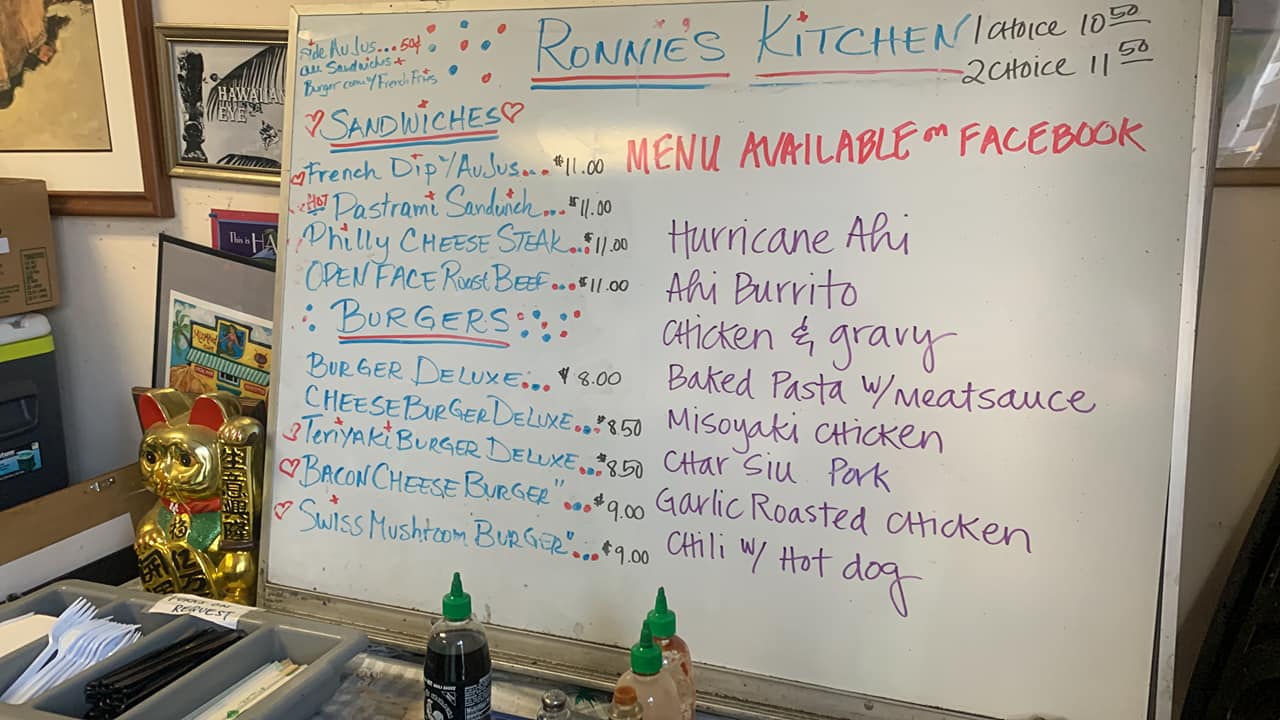 Side Au Jus...50¢
all Sandwichs +
Burger come w/ French Fries
RONNIE'S KITCHEN
1 CHOICE 10 50
2 CHOICE 11 50
SANDWICHES
French Dip w/ Au Jus... $11.00
HOT Pastrami Sandwich... $11.00
Philly CHEESE STEAK... $11.00
OPEN FACE Roast BEEF... $11.00
BURGERS
BURGER DELUXE... $8.00
CHEESE BURGER DELUXE... $8.50
Teriyaki BURGER DELUXE... $8.50
BACON CHEESE BURGER"... $9.00
Swiss Mushroom BURGER"... $9.00
MENU AVAILABLE on FACEBOOK
Hurricane Ahi
Ahi Burrito
Chicken & gravy
Baked Pasta w/ meatsauce
Misoyaki chicken
Char Siu Pork
Garlic Roasted Chicken
Chili w/ Hot dog
HAWAIIAN
EYE
This is HA
生意興隆
福
REQUEST